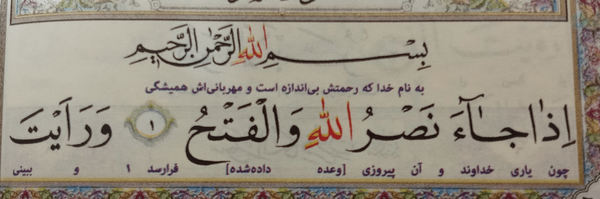 بِسْمِ اللهِ الرَّحْمٰنِ الرَّحِیمِ
به نام خدا که رحمتش بی‌اندازه است و مهربانی‌اش همیشگی
اِذٰا جٰآءَ نَصْرُ اللهِ وَالْفَتْحُ ١ وَرَاَیْتَ
چون یاری خداوند و آن پیروزی [وعده داده‌شده] فرارسد ١ و ببینی